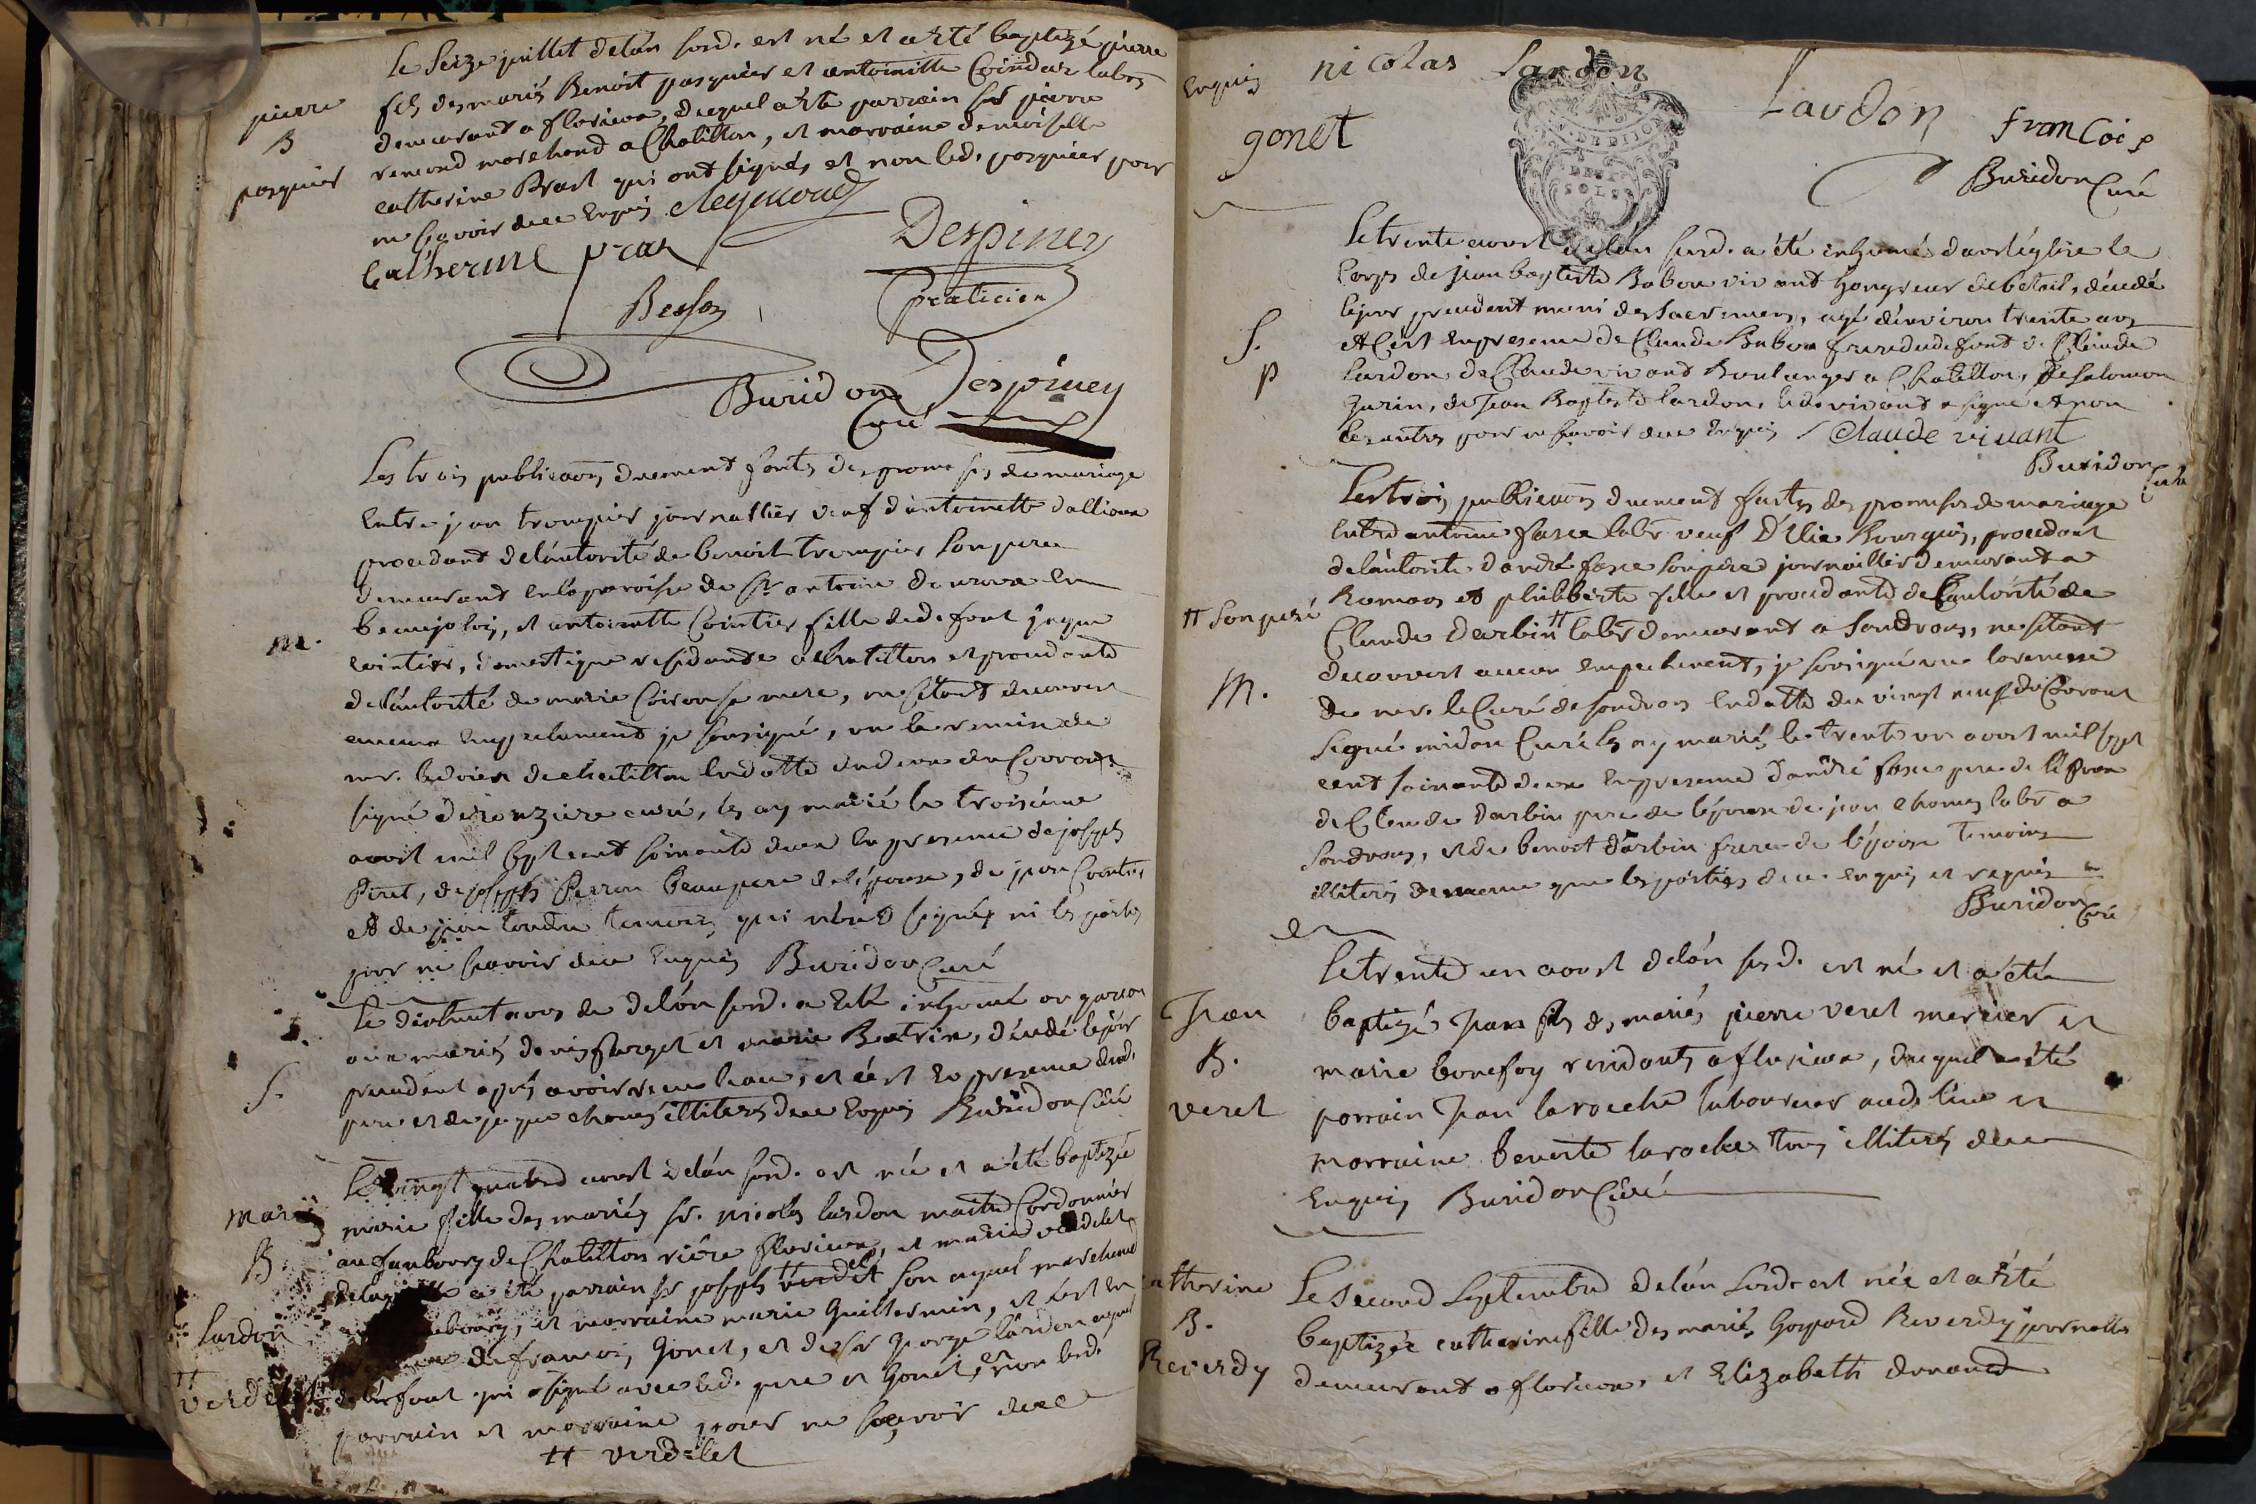 Le Seize juillet de l'an susd. est né et a eté baptizé pierre
pierre
fils des mariés Benoist pasquier et antoinette Coindar labr
B
demeurant a fleurieux, duquel a été parrain sr pierre
pasquier
remond marchand a Chatillon, et marraine demoiselle
catherine Prast qui ont signés et non led. pasquier pour
ne sçavoir de ce Enquis Reymond
Catherine prax
Despiney
praticien
Besson
Buridon Curé
Despiney
Les trois publicaōns duement faites des promesses de mariage
Entre jean trompier journallier veuf d'antoinette dallioux
procedant de l'autorité de benoit trompier son pere
demeurant en la paroisse de St antoine d en
beaujolois, et antoinette Cointier fille de defont jaque
m.
cointier, domestique residante a chatillon et procedante
de l'autorité de marie Coiron sa mere, ne s'etant decouvert
aucun Empechement je sousigné, vu la remise de
mr. le doien de chatillon en datte du deux du Courant
signé curé, les ay marié le troisieme
aoust mil sept cent soixante deux En presence de joseph
Piret, de joseph Perron beaupere de l'epouse, de jean Cointier
et de jean temoins qui n'ont signés ni les parties
pour ne sçavoir de ce Enquis Buridon Curé
Le dixhuit aous de de l'an susd. a Eté inhumé un garçon
aux mariés denis farget et marie Batrin, décedé le jour
S.
precedent aprés avoir reçu l'eau, et c'est En presence dud.
pere et de jaque chanes illiterés de ce Enquis Buridon Curé
Le vingt quatre aoust de l'an susd. est née et a été baptizée
marie
marie fille des mariés sr. nicolas lardon maitre Cordonnier
au fauxbourg de Chatillon riére fleurieux, et marie verdelet
B.
delaquelle a été parrain sr joseph verdelet son ayeul marchand
et marraine marie Guillermin, et c'est en
lardon
de françois Gonet, et de sr George lardon ayeul
++ verdelet
de l'enfant qui a signé avec led. pere et Gonet, et non led.
parrain et marraine pour ne sçavoir de ce
++ verdelet
Enquis nicolas Lardon
Lardon
gonet
françois
Buridon Curé
Le trente aoust de l'an susd. a été inhumé dans l'église le
Corps de jean baptiste Babou vivant hongreur de betail, décedé
le jour precedent muni des sacremens, agé d'environ trente ans
S.
et C'est En presence de Claude Babou frere du defont de Claude
P
lardon, de Claude vivant Boulanger a Chatillon, de Salomon
Jurin, de Jean Baptiste lardon, led. vivant a signé et non
les autres pour ne sçavoir de ce Enquis / Claude vivant
Buridon Curé
Les trois publicaōns duement faites des promesses de mariage
Entre antoine fasce labr veuf D'Elie Bourguis, procedant
de l'autorité d'andré fasce son pere journallier demeurant a
Romans et philiberte fille et procedante de l'autorité de
++ son pere
Claude Darbin ++ labr demeurant a Sandrans, ne s'etant
decouvert aucun Empechement, je sousigné vu la remise
M.
de mr. le Curé de sandrans En datte du vingt neuf du Courant
signé midan Curé les ay mariés le trente un aoust mil sept
cent soixante deux En presence d'andré fasce pere de l'Epoux
de Claude darbin pere de l'épouse de jean chanes labr a
Sandrans, et de benoit darbin frere de l'épouse temoins
illiterés de meme que les parties de ce Enquis et requis
Buridon Curé
Le trente un aoust de l'an susd. est né et a été
Jean
baptizé Jean fils des mariés pierre veret mercier et
B.
marie bonefoy residents a fleurieux, duquel a été
veret
parrain Jean laroche laboureur aud. lieu et
marraine benoite laroche tous illiterés de ce
Enquis Buridon Curé
Catherine
Le second septembre de l'an susd. est née et a été
B.
baptizée catherine fille des mariés Gaspard Reverdy journallier
Reverdy
demeurant a fleurieux, et Elizabeth durand